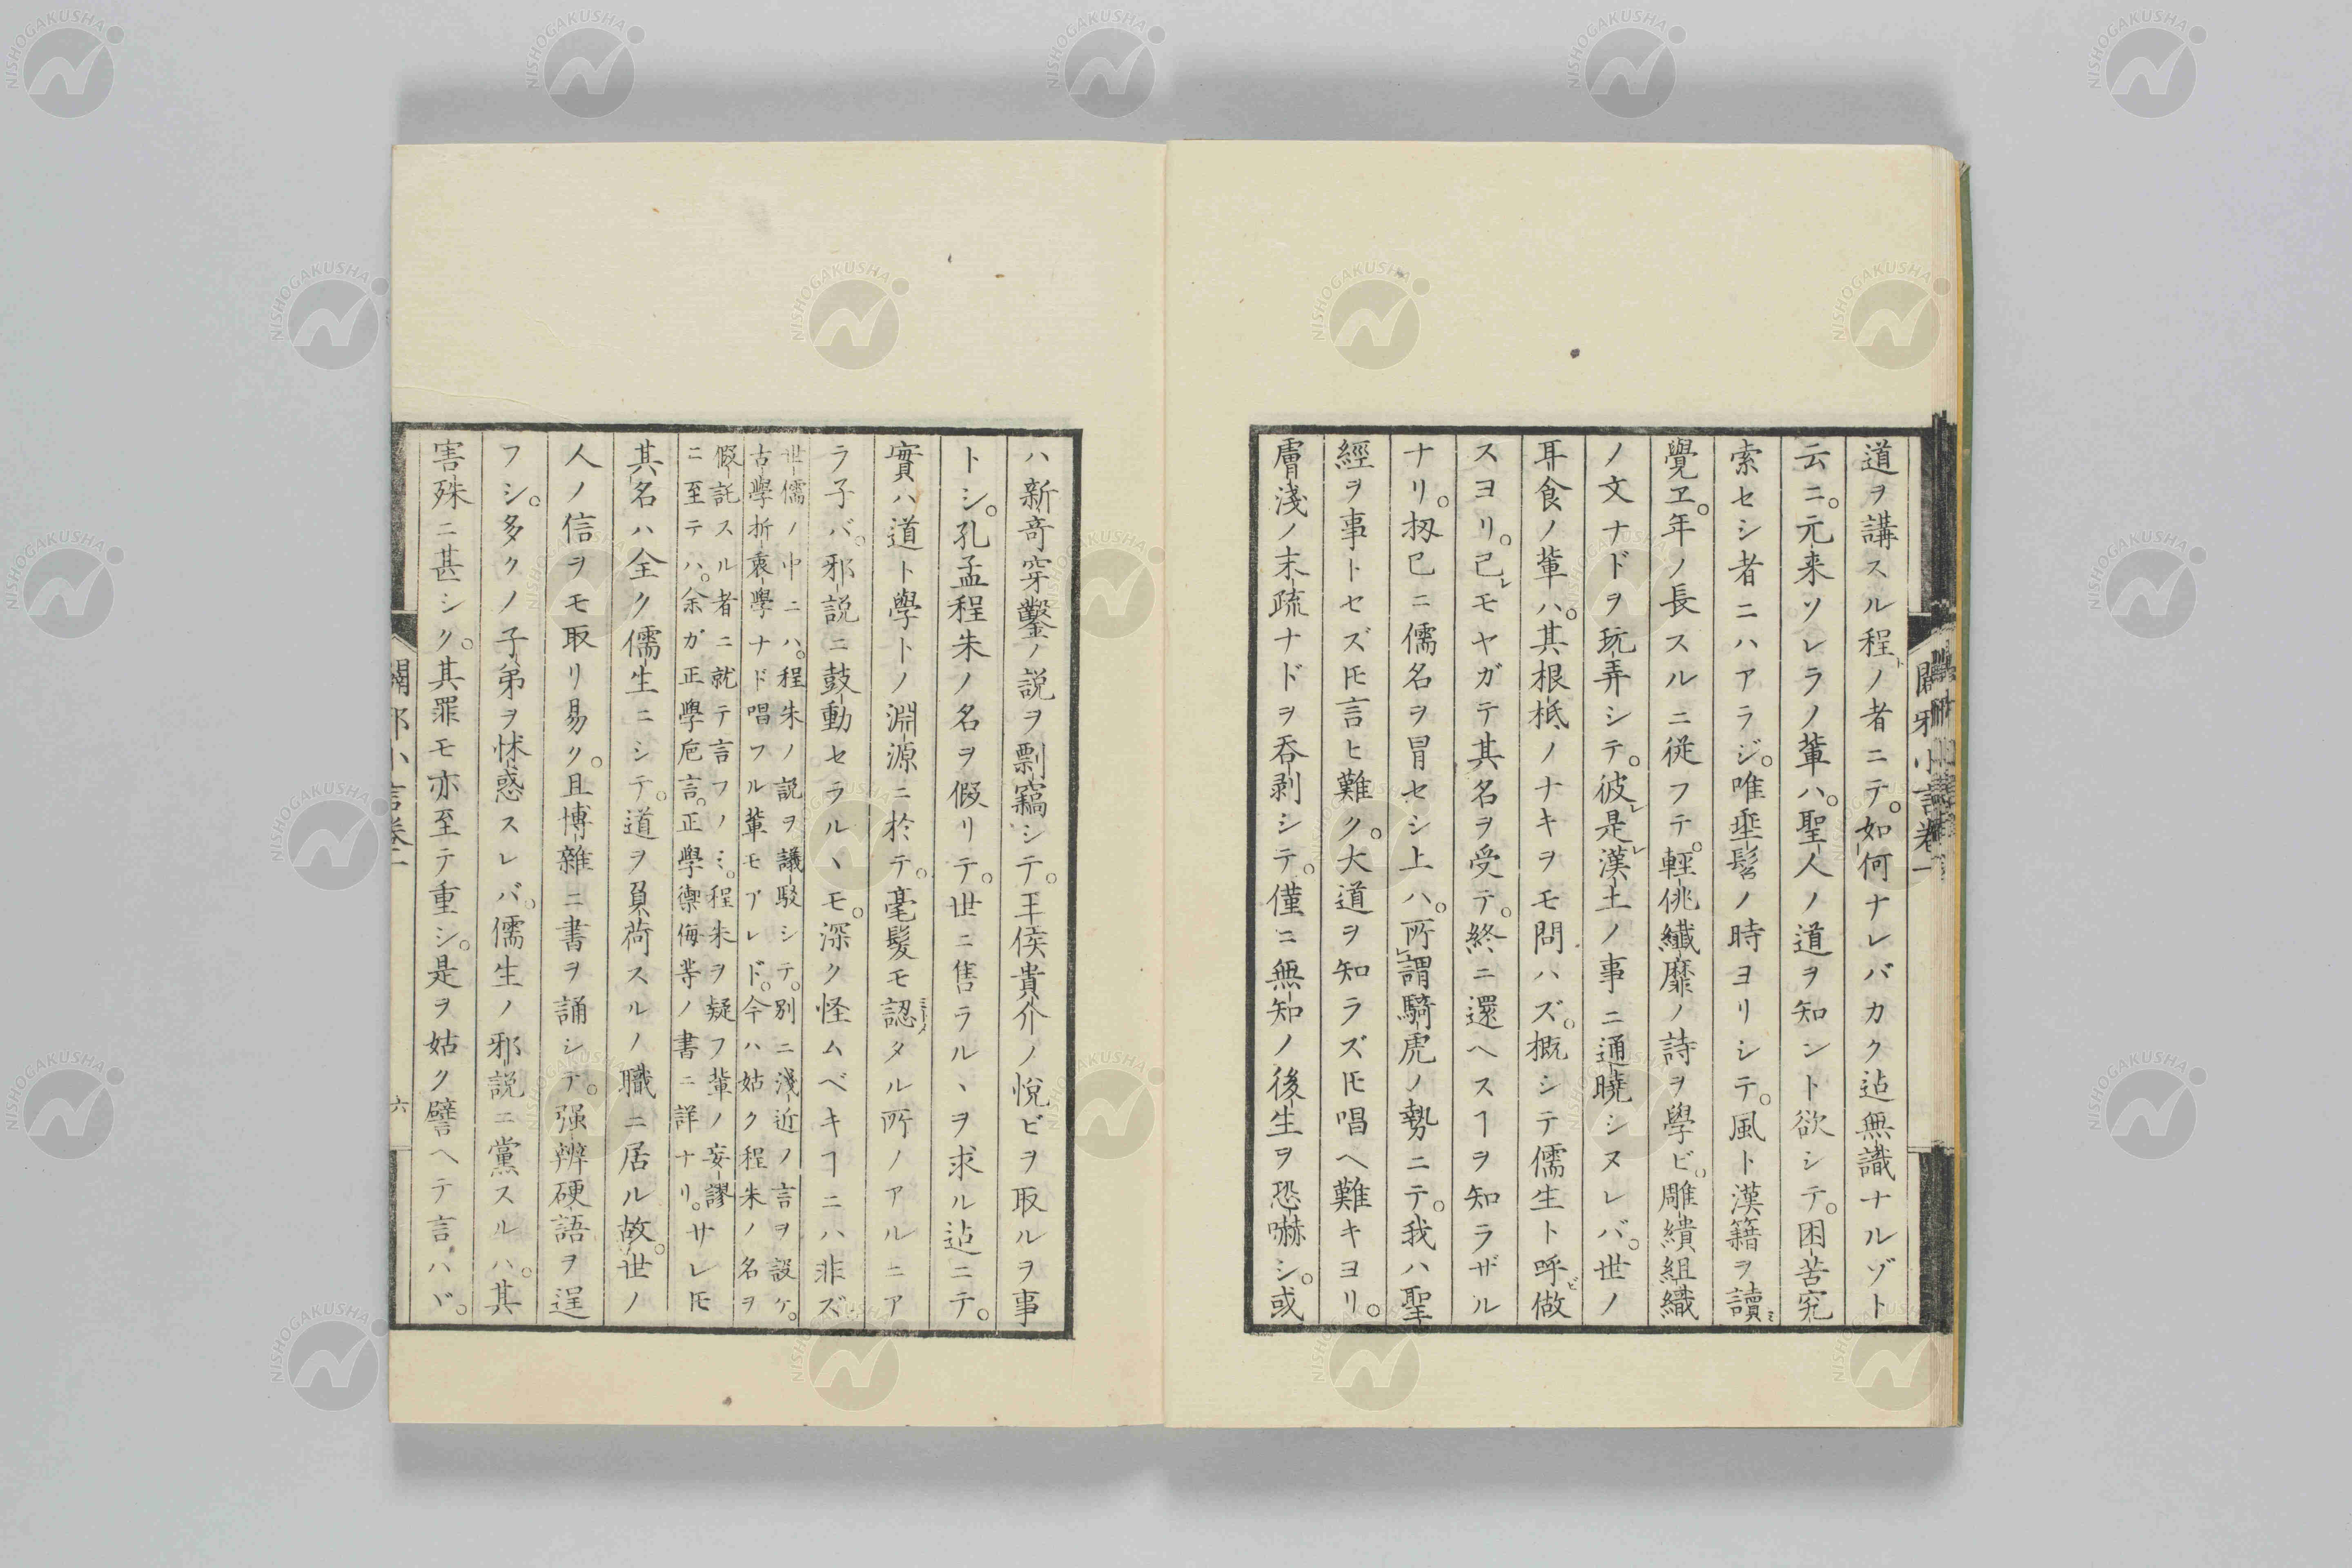 道ヲ講スル程ノ者ニテ。如何ナレバカク迠無識ナルゾト
云ニ。元来ソレラノ輩ハ。聖人ノ道ヲ知ント欲シテ。困苦究
索セシ者ニハアラジ。唯垂髫ノ時ヨリシテ。風ト漢籍ヲ讀ミ
覺ヱ。年ノ長スルニ従フテ。輕俳纖靡ノ詩ヲ學ビ。雕繢組織
ノ文ナドヲ玩弄シテ。彼レ是レ漢土ノ事ニ通曉シヌレバ。世ノ
耳食ノ輩ハ。其根柢ノナキヲモ問ハズ。概シテ儒生ト呼ビ做
スヨリ。己レモヤガテ其名ヲ受テ。終ニ還ヘスヿヲ知ラザル
ナリ。扨已ニ儒名ヲ冒セシ上ハ。所謂騎虎ノ勢ニテ。我ハ聖
經ヲ事トセズㇳモ言ヒ難ク。大道ヲ知ラズㇳモ唱ヘ難キヨリ。
膚淺ノ末疏ナドヲ呑剥シテ。僅ニ無知ノ後生ヲ恐嚇シ。或
ハ新奇穿鑿ノ説ヲ剽竊シテ。王侯貴介ノ悅ビヲ取ルヲ事
トシ。孔孟程朱ノ名ヲ假リテ。世ニ售ラルヽヲ求ル迠ニテ。
實ハ道ト學トノ淵源ニ於テ。毫髮モ認タル所ノアルニア
ラ子バ。邪説ニ鼓動セラルヽモ。深ク怪ムベキヿニハ非ズ
世儒ノ中ニハ。程朱ノ説ヲ議駁シテ。別ニ淺近ノ言ヲ設ケ。
古學折衷學ナド唱フル輩モアレド。今ハ姑ク程朱ノ名ヲ
假託スル者ニ就テ言フノミ。程朱ヲ疑フ輩ノ妄謬
ニ至テハ。余ガ正學卮言。正學禦侮等ノ書ニ詳ナリ。サレㇳモ
其名ハ全ク儒生ニシテ。道ヲ負荷スルノ職ニ居ル故。世ノ
人ノ信ヲモ取リ易ク。且博雜ニ書ヲ誦シテ。强辨硬語ヲ逞
フシ。多クノ子弟ヲ怵惑スレバ。儒生ノ邪説ニ黨スルハ。其
害殊ニ甚シク。其罪モ亦至テ重シ。是ヲ姑ク譬ヘテ言ハヾ。
闢邪小言卷二
六